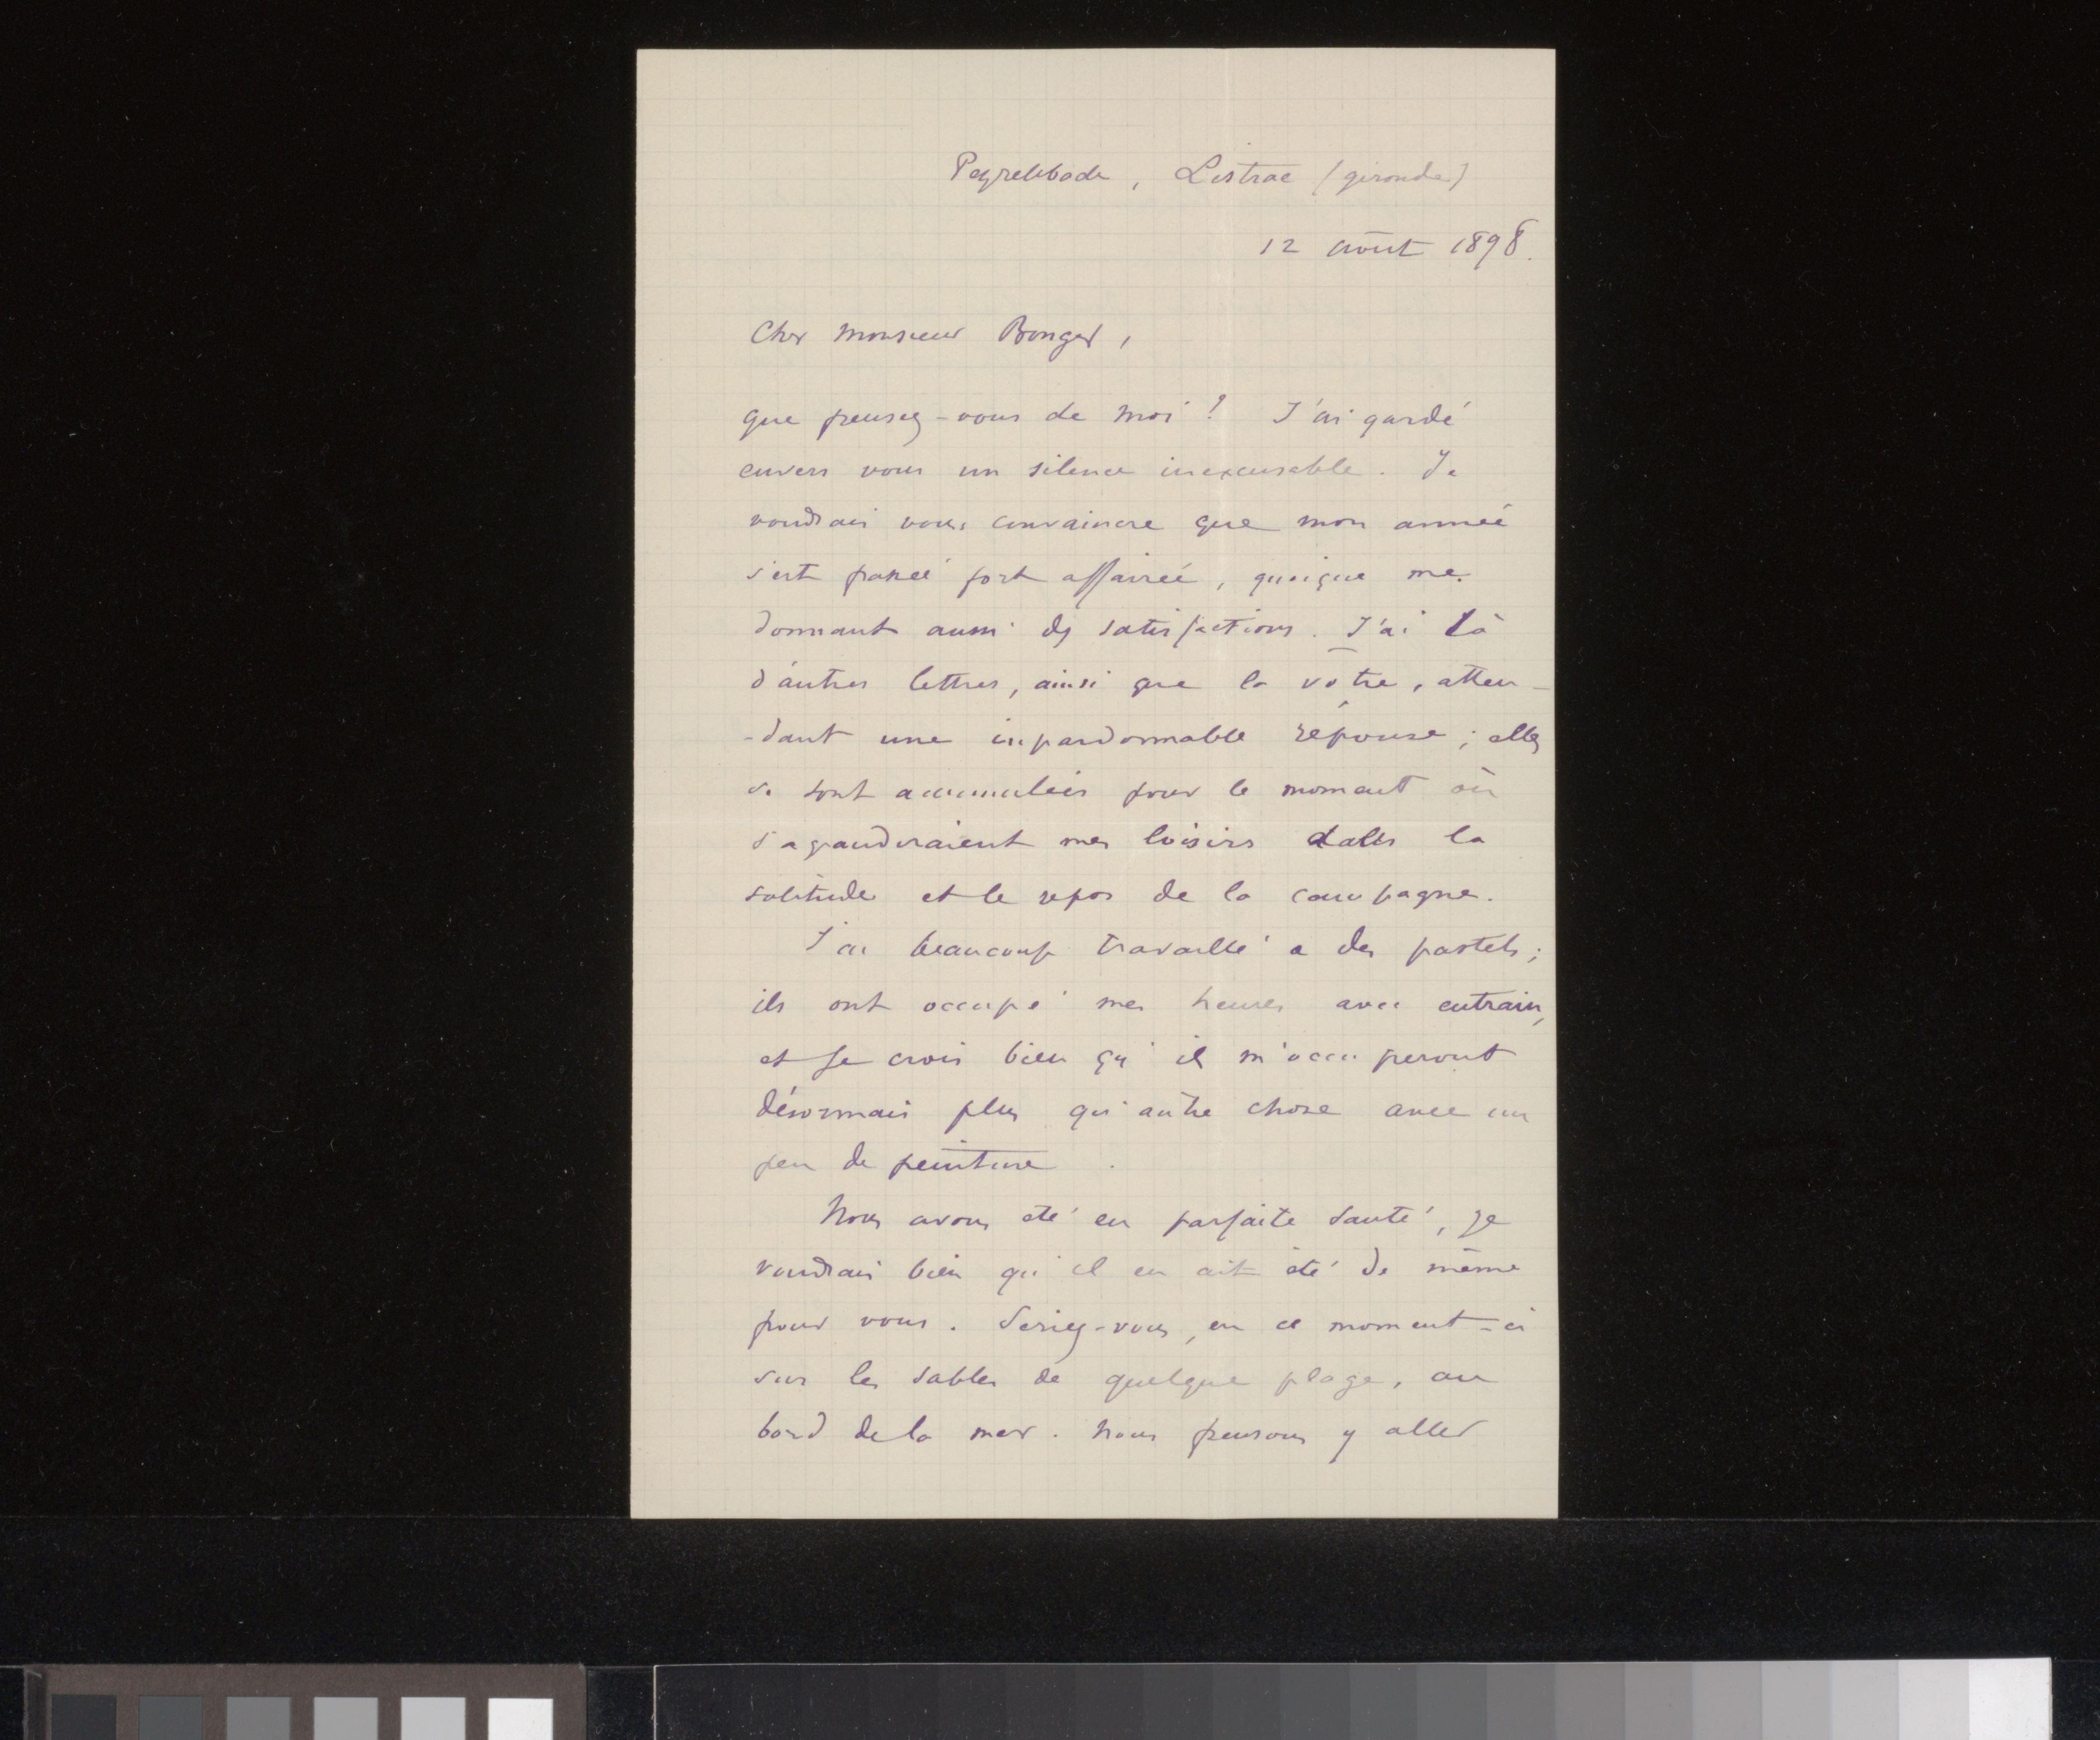 Peyrelebade, Listrac (gironde)
12 août 1898.
Cher Monsieur Bonger,
que pensez-vous de moi ? J'ai gardé
envers vous un silence inexcusable. Je
voudrais vous convaincre que mon année
s'est passée fort affairée, quoique me
donnant aussi des satisfactions. J'ai là
d'autres lettres, ainsi que la vôtre, atten-
-dant une impardonnable réponse ; elles
se sont accumulées pour le moment où
s'agrandiraient mes loisirs dans la
solitude et le repos de la campagne.
J'ai beaucoup travaillé a des pastels ;
ils ont occupé mes heures avec entrain,
et je crois bien qu'ils m'occuperont
désormais plus qu'autre chose avec un
peu de peinture.
Nous avons été en parfaite santé, je
voudrais bien qu'il en ait été de même
pour vous. Seriez-vous, en ce moment-ci
sur les sables de quelque plage, au
bord de la mer. Nous pensons y aller